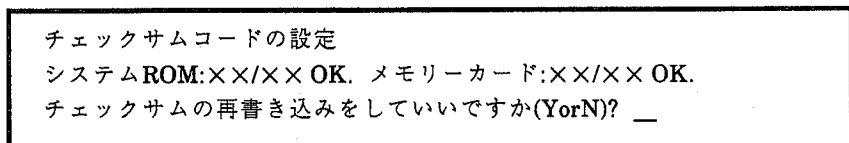 チェックサムコードの設定
システムROM:××/×× OK. メモリーカード:××/×× OK.
チェックサムの再書き込みをしていいですか(YorN)? _